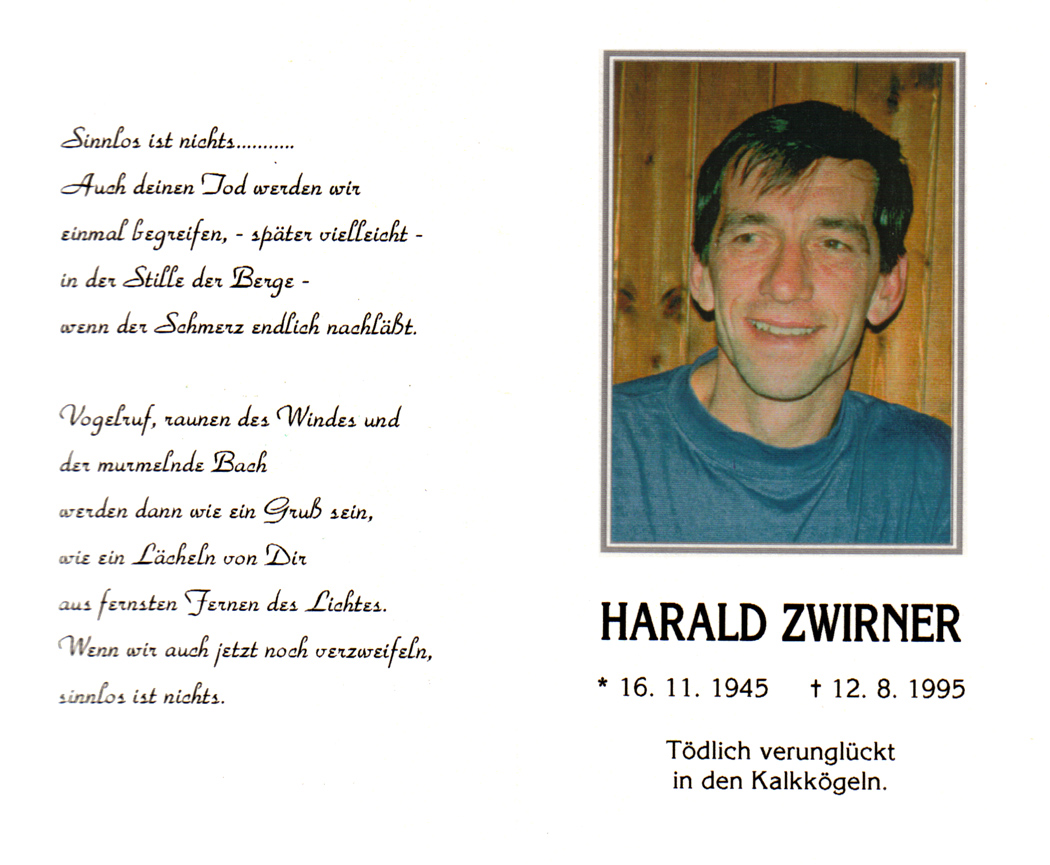 Sinnlos ist nichts...........
Auch deinen Tod werden wir
einmal begreifen, - später vielleicht -
in der Stille der Berge -
wenn der Schmerz endlich nachläßt.
Vogelruf, raunen des Windes und
der murmelnde Bach
werden dann wie ein Gruß sein,
wie ein Lächeln von Dir
aus fernsten Fernen des Lichtes.
Wenn wir auch jetzt noch verzweifeln,
sinnlos ist nichts.
HARALD ZWIRNER
* 16. 11. 1945 † 12. 8. 1995
Tödlich verunglückt
in den Kalkkögeln.